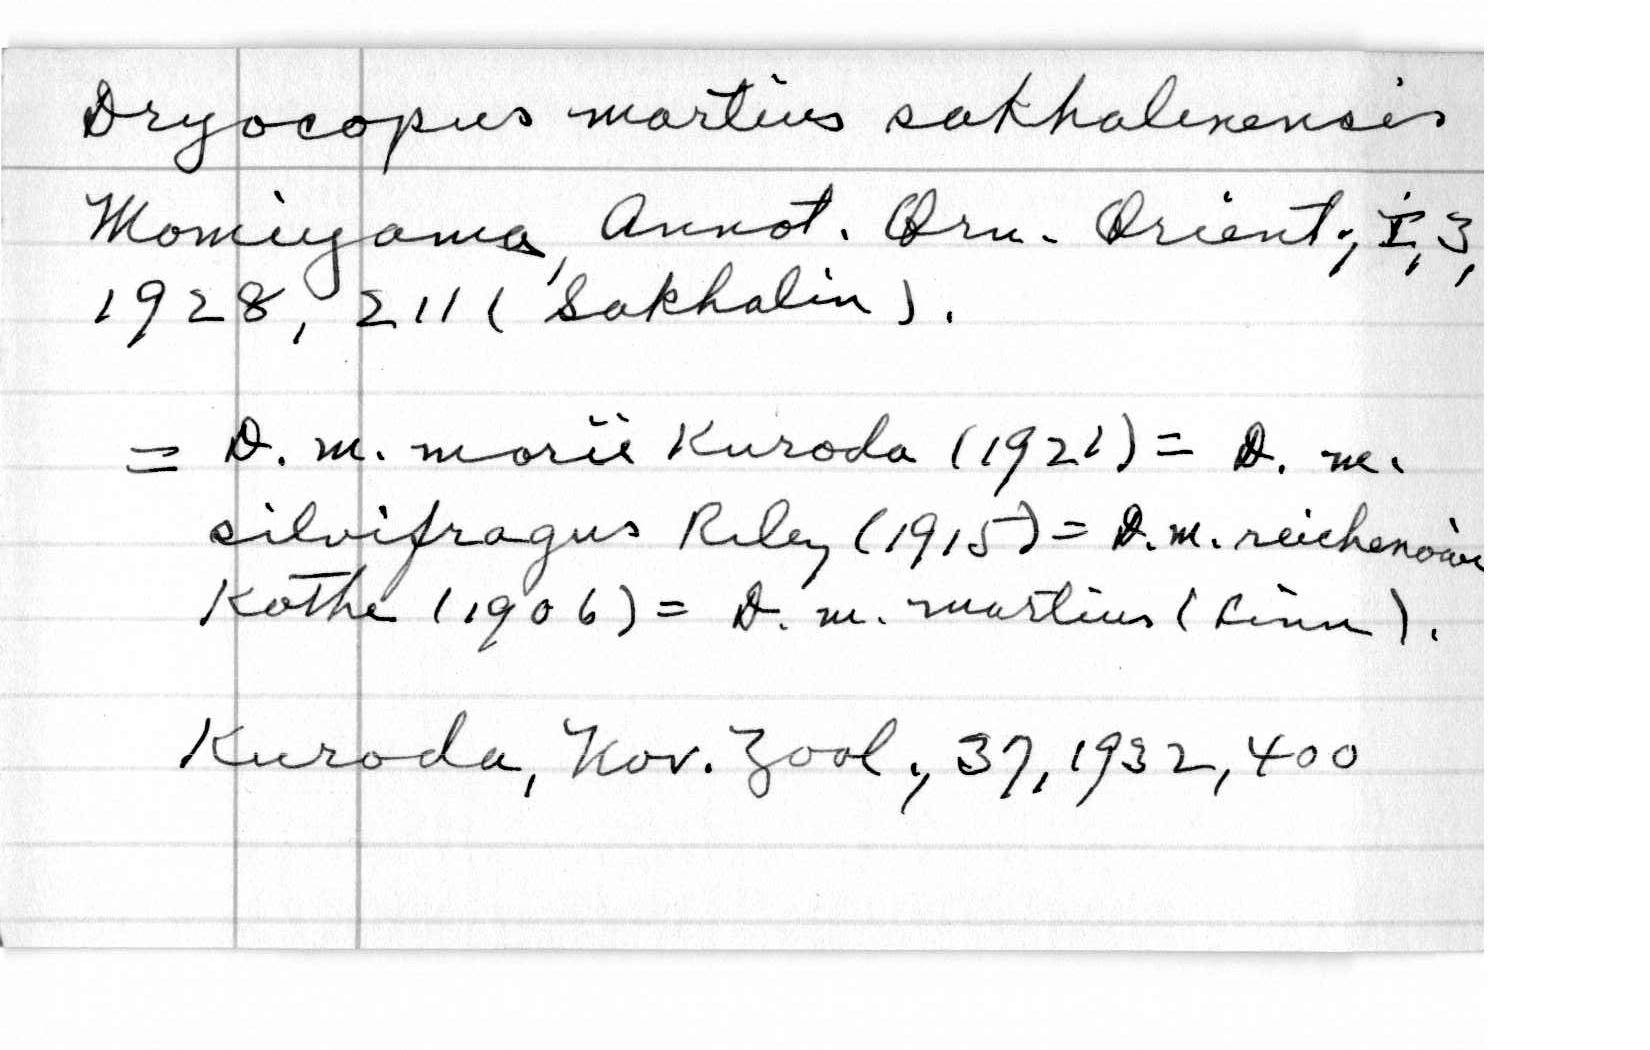 Dryocopus martius sakhalinensis
Momiyama, Annot. Orn. Orient., I, 3,
1928, 211 (Sakhalin).
= D. m. morii Kuroda (1921) = D. m.
silvifragus Riley (1915) = D. m. reichenowi
Kothe (1906) = D. m. martius (Linn).
Kuroda, Nov. Zool., 37, 1932, 400